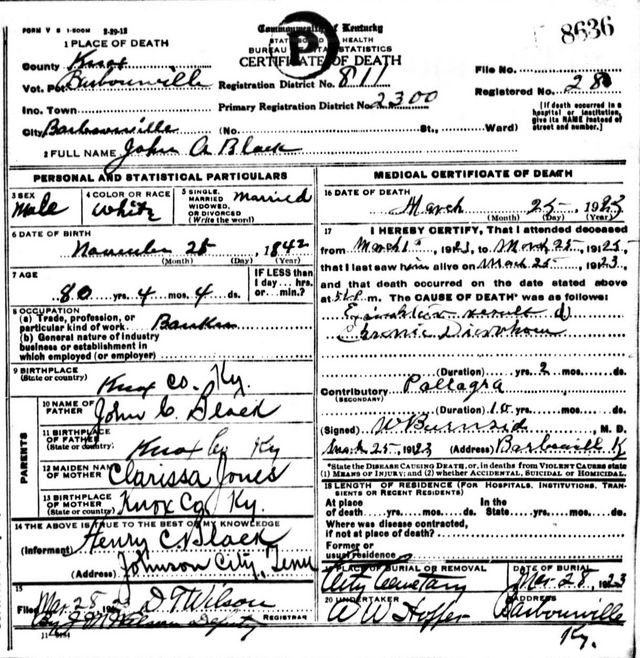 FORM V S 1-500M 2-29-12
Commonwealth of Kentucky
STATE BOARD OF HEALTH
BUREAU OF VITAL STATISTICS
CERTIFICATE OF DEATH
8636
1 PLACE OF DEATH
County Knox
Vot. Pct. Barbourville
Registration District No. 811
File No.
Inc. Town
Primary Registration District No. 2300
Registered No. 28
City Barbourville (No. St., Ward)
[If death occurred in a hospital or institution, give its NAME instead of street and number.]
2 FULL NAME John A Black
PERSONAL AND STATISTICAL PARTICULARS
3 SEX Male
4 COLOR OR RACE White
5 SINGLE, MARRIED WIDOWED, OR DIVORCED (Write the word) Married
6 DATE OF BIRTH
November 25, 1842
(Month) (Day) (Year)
7 AGE
80 yrs. 4 mos. 4 ds.
IF LESS than 1 day... hrs. or... min.?
8 OCCUPATION
(a) Trade, profession, or particular kind of work Banker
(b) General nature of industry business or establishment in which employed (or employer)
9 BIRTHPLACE
(State or country) Knox Co. Ky.
PARENTS
10 NAME OF FATHER John C. Black
11 BIRTHPLACE OF FATHER (State or country) Knox Co Ky
12 MAIDEN NAME OF MOTHER Clarissa Jones
13 BIRTHPLACE OF MOTHER (State or country) Knox Co, Ky.
14 THE ABOVE IS TRUE TO THE BEST OF MY KNOWLEDGE
(Informant) Henry C. Black
(Address) Johnson City, Tenn
15
Filed Mar. 28, 1923 D. T. Wilson
REGISTRAR
Deputy
MEDICAL CERTIFICATE OF DEATH
16 DATE OF DEATH
March 25, 1923
(Month) (Day) (Year)
17 I HEREBY CERTIFY, That I attended deceased
from March 1st, 1923, to March 25, 1923,
that I last saw him alive on March 25, 1923,
and that death occurred on the date stated above
at P. m. The CAUSE OF DEATH* was as follows:
result of
Chronic Diarrhoea
(Duration) yrs. 2 mos. ds.
Contributory Pallagra
(SECONDARY)
(Duration) 10 yrs. mos. ds.
(Signed) W Burnsid, M. D.
25, 1923 (Address) Barbourvill K
*State the DISEASE CAUSING DEATH, or, in deaths from VIOLENT CAUSES state (1) MEANS OF INJURY; and (2) whether ACCIDENTAL, SUICIDAL or HOMICIDAL.
18 LENGTH OF RESIDENCE (FOR HOSPITALS, INSTITUTIONS, TRANSIENTS OR RECENT RESIDENTS)
At place of death yrs. mos. ds. In the State yrs. mos. ds.
Where was disease contracted,
if not at place of death?
Former or usual residence
19 PLACE OF BURIAL OR REMOVAL City Cemetary
DATE OF BURIAL Mar 28, 1923
20 UNDERTAKER W W Hopper
ADDRESS Barbourville
Ky.